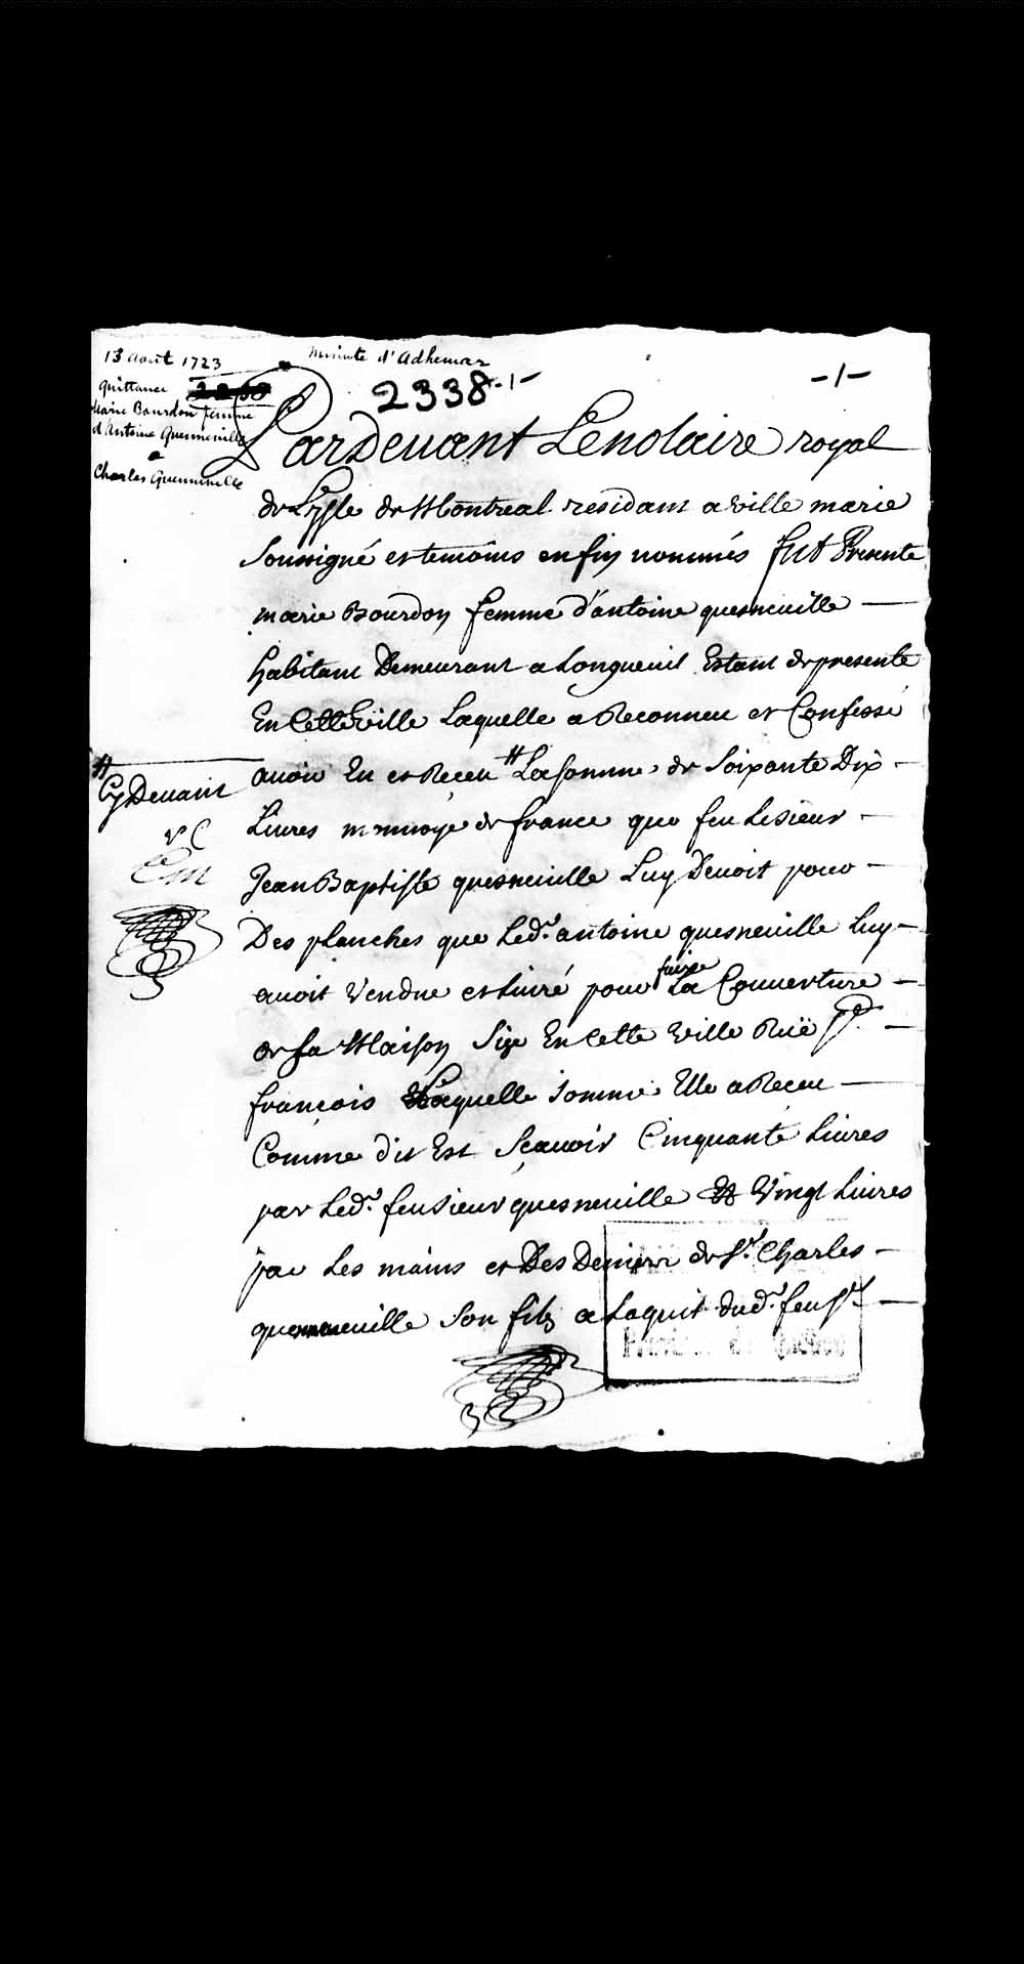 13 aout 1723
Quittance
Marie Bourdon femme
d'Antoine Quenneville
a
Charles Quenneville
minute d'Adhemar
2338 -1-
-1-
Pardevant Lenotaire royal
de Lysle de Montreal residant a ville marie
Soussigné et temoins en fin nommés fut Presente
marie Bourdon femme d'antoine quesneuille
habitant Demeurant a Longueuil Estant de presente
En Cette Ville Laquelle a Reconneu et Confessé
auoir Eu et Receu # La somme de Soixante Dix
# Cy Deuant
Liures monnoye de france que feu Lesieur
Jean Baptiste quesneuille Luy Deuoit pour
Des planches que Led.t antoine quesneuille luy
auoit Vendue et Liuré pour faire La Couuerture
de sa Maison Size En Cette Ville Ruë St.
francois Laquelle somme Elle a Receu
Comme dit Est Scauoir Cinquante Liures
par Led.t feu sieur quesneuille Et Vingt Liures
par Les mains et Des Deniers de Sr. Charles
quesneuille Son fils a Laquit dud.t feu Sr.